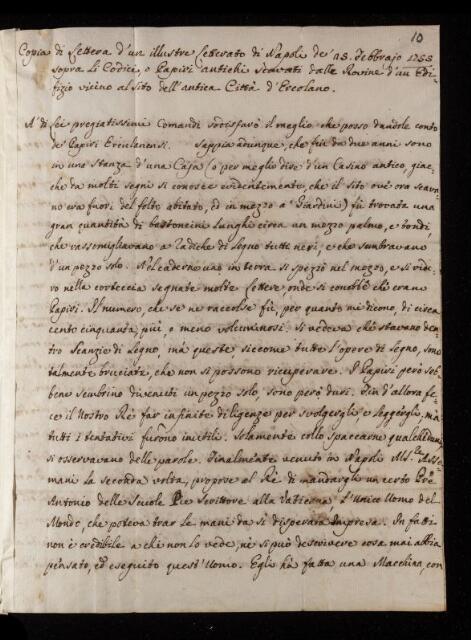 10
Copia di Lettera d'un illustre Letterato di Napoli de' 18. Febbrajo 1755
sopra li Codici, o Papiri antichi scavati dalle Rovine d'un Edi-
fizio vicino al sito dell'antica Città d'Ercolano.
A' di Lei pregiatissimi Comandi sodisfarò il meglio che posso dandole conto
de' Papiri Erculanensi. Sappia adunque, che fin da due anni sono
in una stanza d'una Casa (o per meglio dire d'un Casino antico, giac-
che da molti segni si conosce evidentemente, che il sito ove ora scava-
no era fuori del folto abitato, ed in mezzo a' Giardini) fù trovata una
gran quantità di bastoncini lunghi circa un mezzo palmo, e tondi,
che rassomigliavano a radiche di legno tutti neri, e che sembravano
d'un pezzo solo. Nel caderne uno in terra si spezzò nel mezzo, e si vide-
ro nella corteccia segnate molte Lettere, onde si conobbe ch'erano
Papiri. Il numero, che se ne raccolse fù, per quanto mi dicono, di circa
cento cinquanta, più, o meno voluminosi. Si vedeva che stavano den-
tro Scanzie di legno, mà queste siccome tutte l'opere di legno, sono
talmente bruciate, che non si possono ricuperare. I Papiri però seb-
bene sembrino divenuti un pezzo solo, sono però duri. Fin d'allora fe-
ce il Nostro Rè far infinite diligenze per svolgergli e leggergli, ma
tutti i tentativi furono inutili. Solamente collo spaccarne qualcheduno
si osservavano delle parole. Finalmente venuto in Napoli Mr. Asse-
mani la seconda volta, propose al Rè di mandargli un certo Pre
Antonio delle Scuole Pie scrittore alla Vaticana, l'Unico Uomo del
Mondo, che poteva trar le mani da sì disperata Impresa. In fatti
non è credibile a chi non lo vede, nè si può descrivere cosa mai abbia
pensato, ed eseguito quest'Uomo. Egli hà fatta una Macchina, con